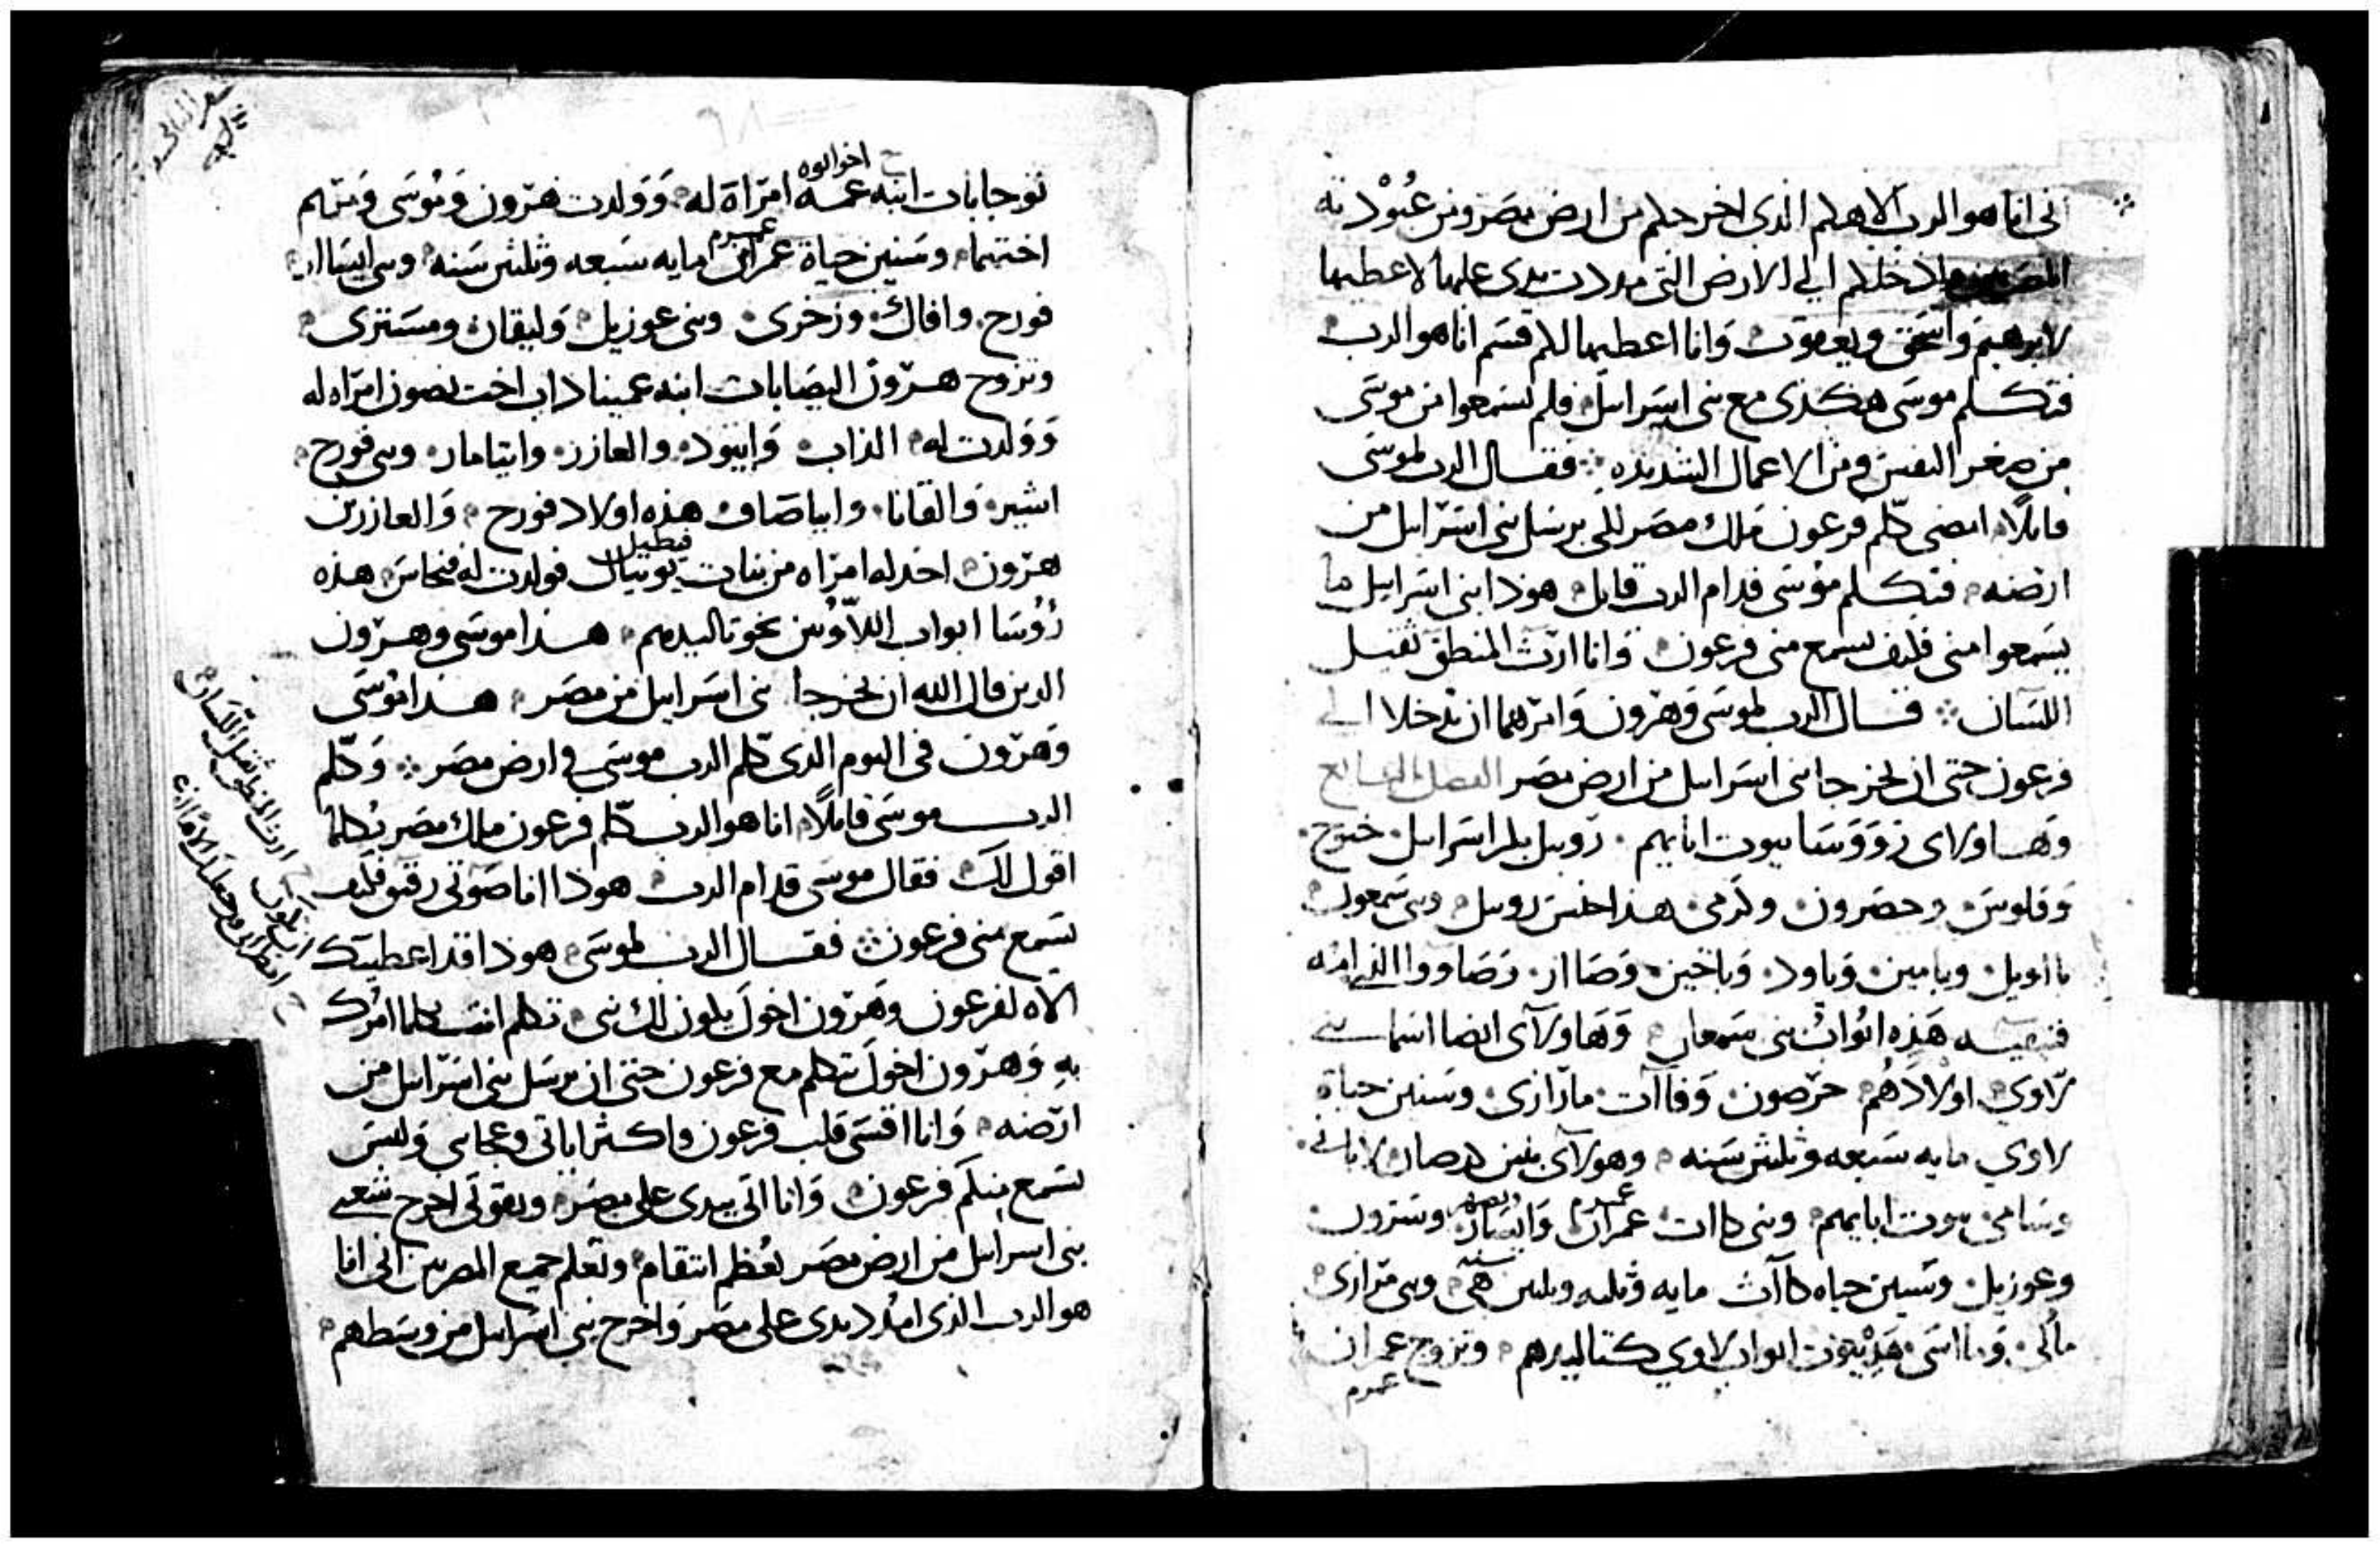 ني انا هو الرب الاهكم الذي اخرجكم من ارض مصر ومن عبودية
المصريين وادخلكم الي الارض التي مددت يدي عليها لاعطيها
لابرهيم واسحق ويعقوب وانا اعطيها لكم قسم انا هو الرب
فتكلم موسى هكذى مع بني اسراييل فلم يسمعوا من موسى
من صغر النفس ومن الاعمال الشديده فقال الرب لموسى
قايلا امضي كلم فرعون ملك مصر لكي يرسل بني اسراييل من
ارضه فتكلم موسى قدام الرب قايل هوذا بني اسراييل ما
يسمعوا مني فكيف يسمع مني فرعون وانا ارت المنطق ثقيل
اللسان قال الرب لموسى وهرون وامرهما ان يدخلا الي
فرعون حتى ان يخرجا بني اسراييل من ارض مصر الفصل السابع
وهاولاى رووسا بيوت اباييهم روبيل بكر اسراييل خنوخ
وفلوس وحصرون وكرمي هذا جنس روبيل وبني سمعون
يااويل ويامين وباود وياخين وصاار وصاووا الذي امه
فنيقيه هذه ابوات بني سمعان وهاولاى ايضا اسما بني
لاوي اولادهم جرصون وقاات مارارى وسنين حياة
لاوي مايه سبعه وثلثين سنه وهولاى بنين جرصان لاباني
وسامي بيوت اباييهم وبني قاات عمران وايصار وحبرون
وعوزيل وسنين حياه قاات مايه وثلثه وثلثين سنه وبني مرارى
مالي وماسى هذه بيوت ابوات لاوي كتاليدهم وتزوج عمران
عمرم
اخو ابوه
يوخابات ابنه عمه امراة له وولدت هرون وموسى ومريم
عمرم
اختهما وسنين حياة عمران مايه سبعه وثلثين سنه وبني ايساار
قورح وافاك وزخرى وبني عوزيل وليقان ومسترى
وتزوج هرون اليصابات ابنه عميناداب اخت نصون امراه له
وولدت له الذاب وابيود والعازر وايتامار وبني قورح
اشير والقانا وابياصاف هذه اولاد قورح والعازر بن
فطيل
هرون اخد له امراه من بنات يونيال فولدت له فنحاس هذه
رؤسا ابوات اللاويين نحو تاليدهم هذا موسى وهرون
الدين قال الله ان يخرجا بني اسراييل من مصر هذا موسى
وهرون في اليوم الدى كلم الرب موسى في ارض مصر وكلم
الرب موسى قايلا انا هو الرب كلم فرعون ملك مصر بكلما
اقول لك فقال موسى قدام الرب هوذا انا صوتي رقيق فكيف
يسمع مني فرعون فقال الرب لموسى هوذا قد اعطيتك
الاه لفرعون وهرون اخوك يكون لك نبي تكلم انت بكلما امرك
به وهرون اخوك يتكلم مع فرعون حتى ان يرسل بني اسراييل من
ارضه وانا اقسى قلب فرعون واكثر اياتي وعجايبي وليس
يسمع منكم فرعون وانا اتي بيدى على مصر وبقوتي اخرج شعبي
بني اسراييل من ارض مصر بعظم انتقام وتعلم جميع المصريين اني انا
هو الرب الذى امدد يدى على مصر واخرج بني اسراييل من وسطهم
ارت المنطق ثقيل اللسان